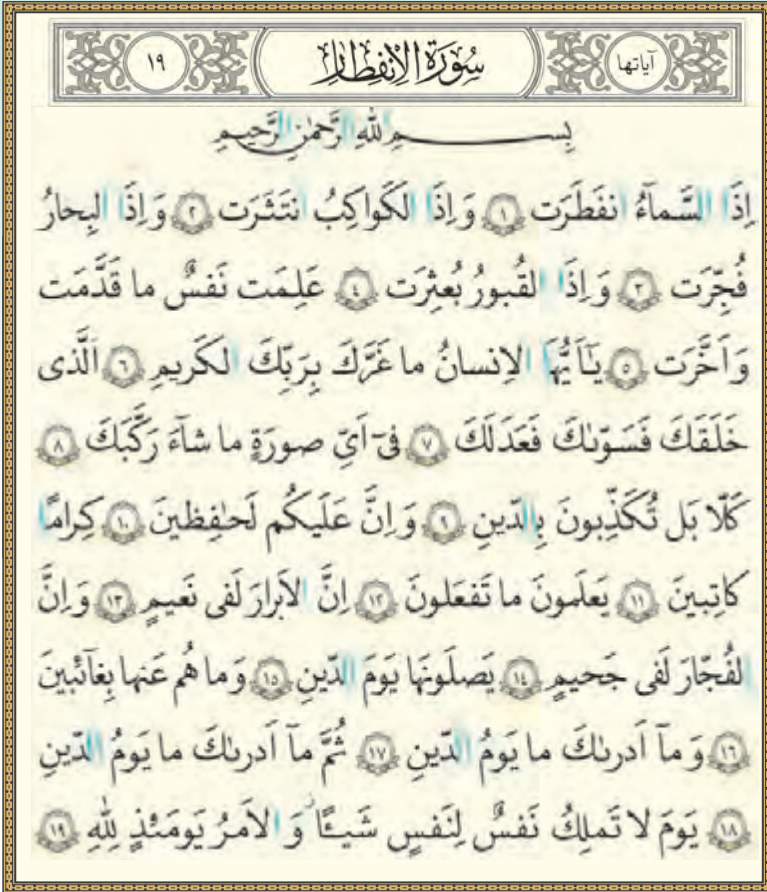 آياتها سُورَةُ الْإِنْفِطَارِ ١٩
بِسْمِ اللهِ الرَّحْمٰنِ الرَّحيمِ
اِذَا السَّماۤءُ انفَطَرَت ١ وَ اِذَا الكَواكِبُ انتَثَرَت ٢ وَ اِذَا البِحارُ
فُجِّرَت ٣ وَ اِذَا القُبورُ بُعثِرَت ٤ عَلِمَت نَفسٌ ما قَدَّمَت
وَ اَخَّرَت ٥ يٰۤاَيُّهَا الاِنسانُ ما غَرَّكَ بِرَبِّكَ الكَريمِ ٦ اَلَّذى
خَلَقَكَ فَسَوّىٰكَ فَعَدَلَكَ ٧ فىۤ اَىِّ صورَةٍ ما شاۤءَ رَكَّبَكَ ٨
كَلّا بَل تُكَذِّبونَ بِالدّينِ ٩ وَ اِنَّ عَلَيكُم لَحٰفِظينَ ١٠ كِرامًا
كاتِبينَ ١١ يَعلَمونَ ما تَفعَلونَ ١٢ اِنَّ الاَبرارَ لَفى نَعيمٍ ١٣ وَ اِنَّ
الفُجّارَ لَفى جَحيمٍ ١٤ يَصلَونَها يَومَ الدّينِ ١٥ وَ ما هُم عَنها بِغاۤئِبينَ
١٦ وَ ماۤ اَدرىٰكَ ما يَومُ الدّينِ ١٧ ثُمَّ ماۤ اَدرىٰكَ ما يَومُ الدّينِ
١٨ يَومَ لا تَملِكُ نَفسٌ لِنَفسٍ شَيـًٔا وَ الاَمرُ يَومَئِذٍ لِلّٰهِ ١٩